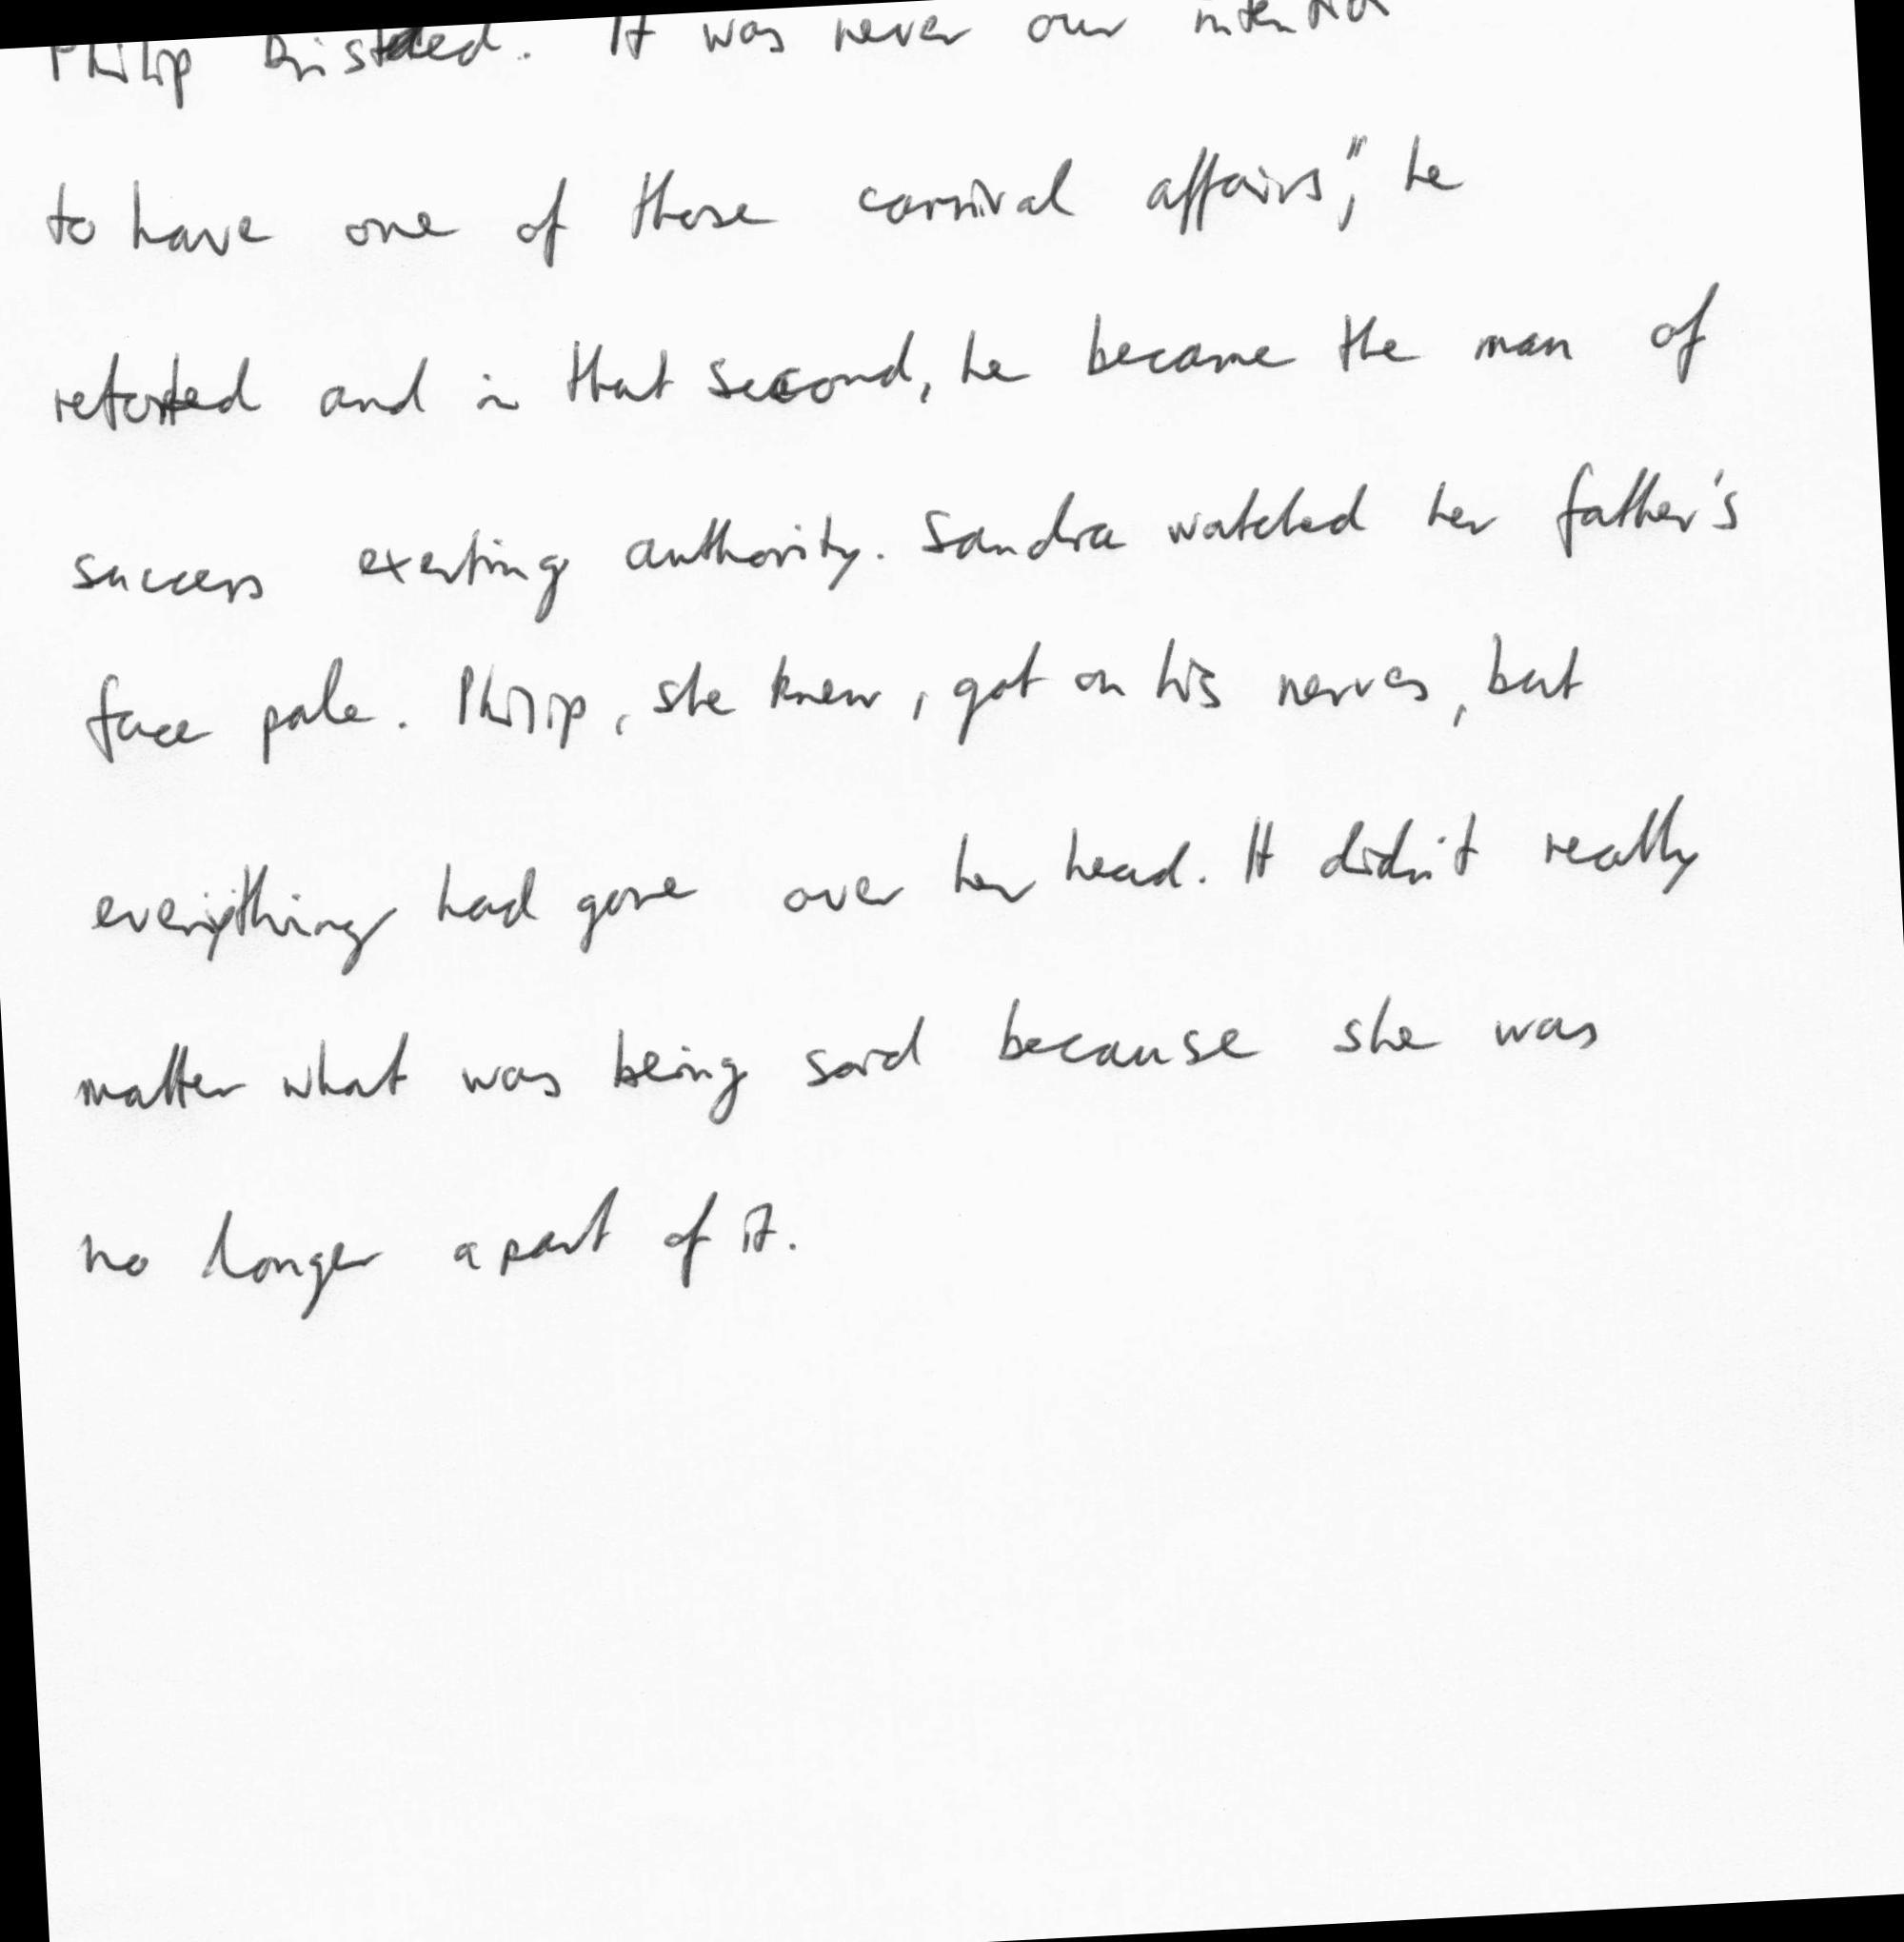 Philip bristled. It was never our intention
to have one of those carnival affairs," he
retorted and in that second, he became the man of
success exerting authority. Sandra watched her father's
face pale. Philip, she knew, got on his nerves, but
everything had gone over her head. It didn't really
matter what was being said because she was
no longer a part of it.